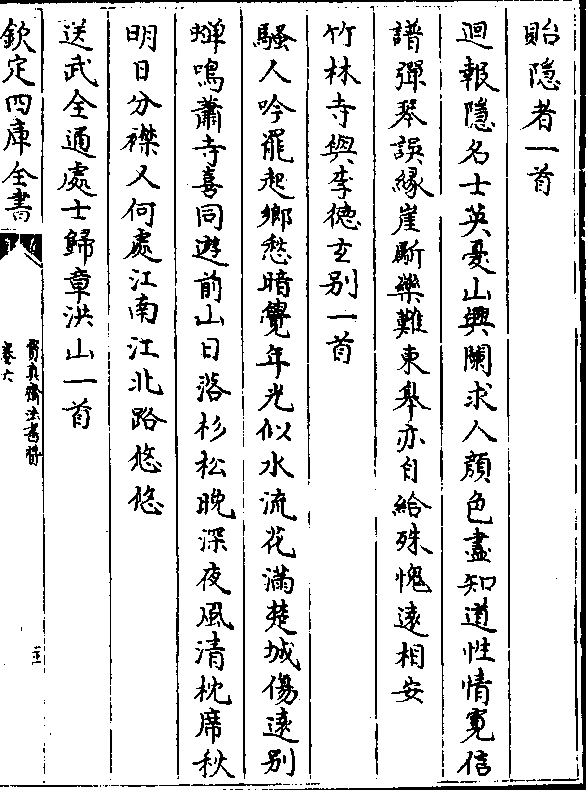 貽隱者一首
迴報隱名士英憂山興闌求人顔色盡知道性情寛信
譜彈琴誤縁崖斸藥難東臯亦自給殊愧遠相安
竹林寺與李德玄别一首
騷人吟罷起鄉愁暗覺年光似水流花滿楚城傷遠别
蟬鳴蕭寺喜同遊前山日落杉松晚深夜風清枕席秋
明日分襟又何處江南江北路悠悠
送武全通處士歸章洪山一首
欽定四庫全書
寳真齋法書贊
卷六